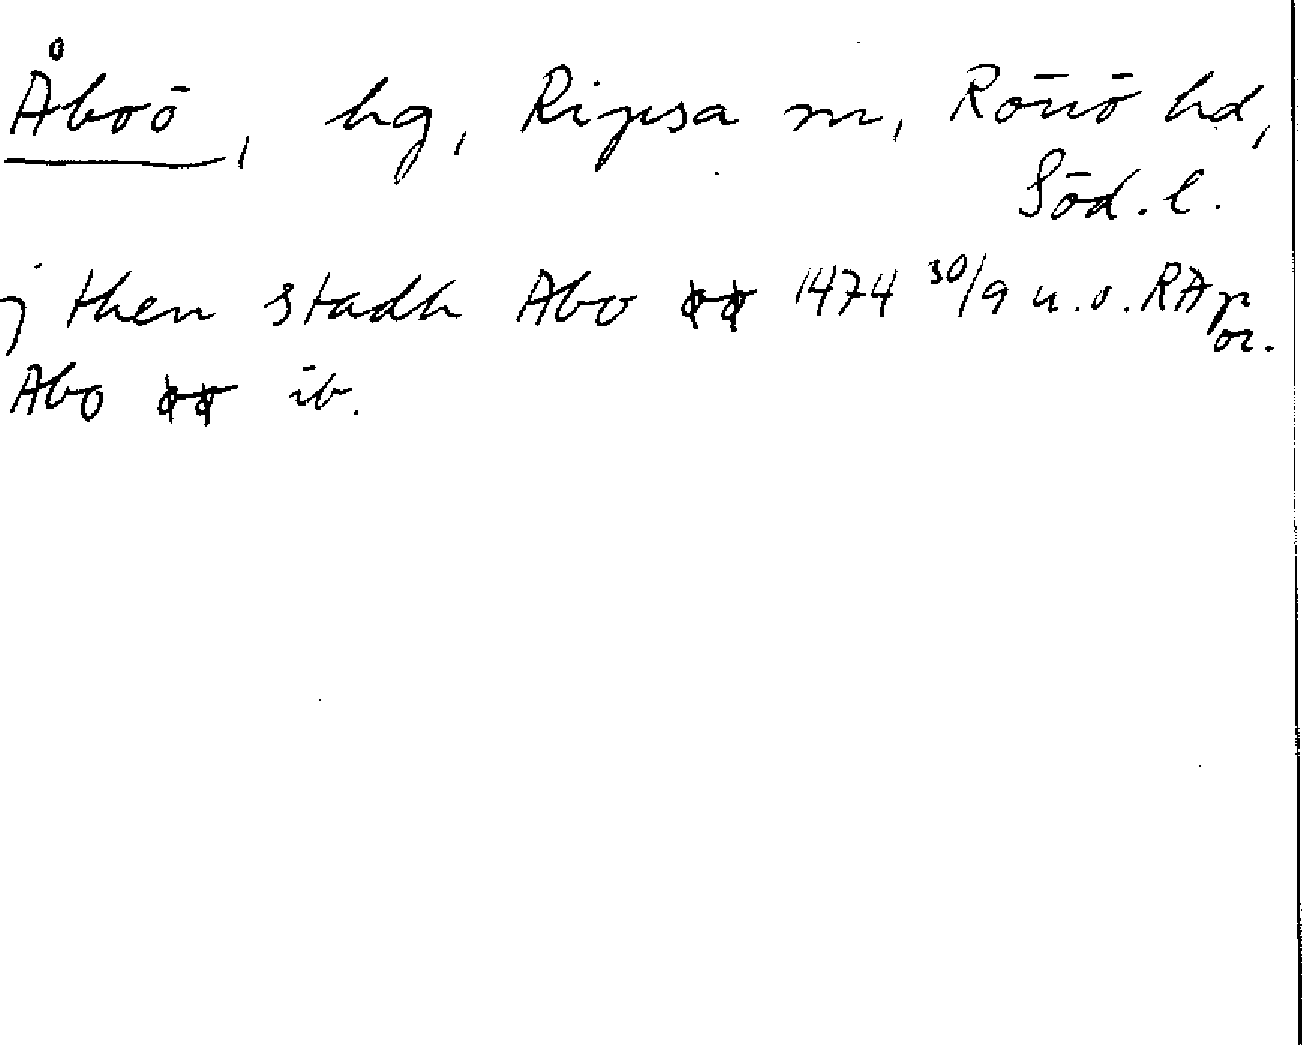 Åboö, hg, Ripsa sn, Rönö hd,
Söd. l.
j then stadh Abo ¤¤ 1474 30/9 u.o. RAp
or.
Abo ¤¤ ib.